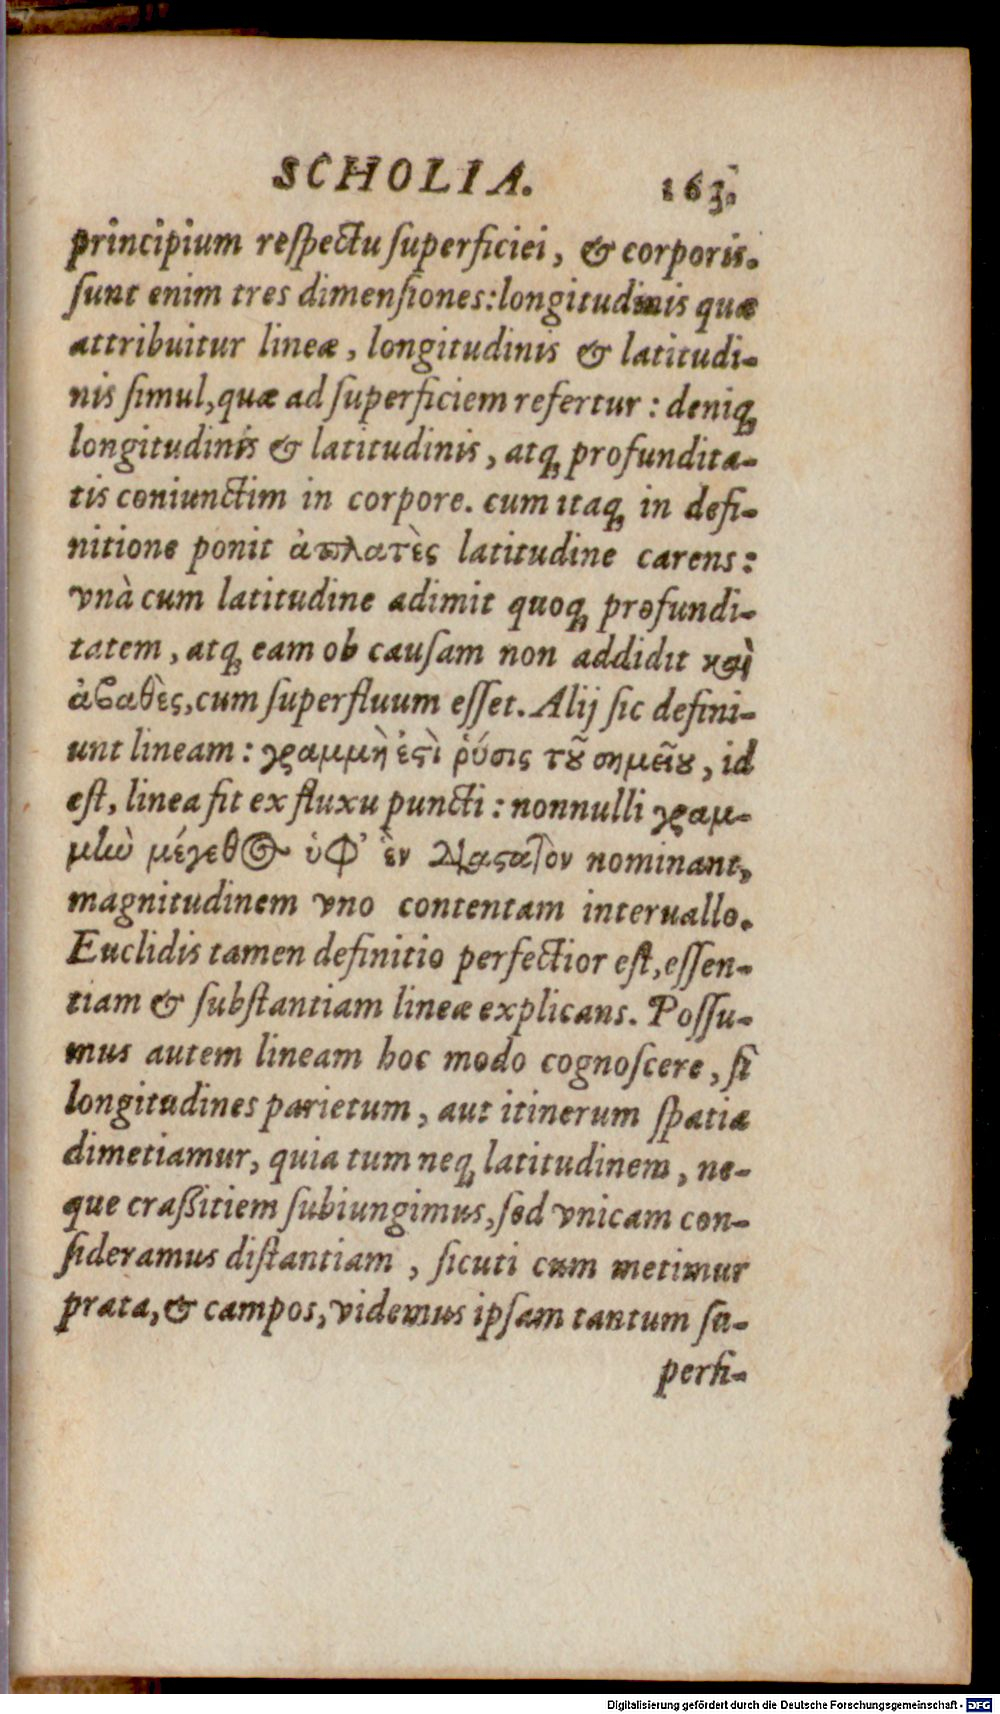 SCHOLIA. 163.
principium reſpectu ſuperficiei, & corporis.
ſunt enim tres dimenſiones: longitudinis quæ
attribuitur lineæ, longitudinis & latitudi-
nis ſimul, quæ ad ſuperficiem refertur: deniq;
longitudinis & latitudinis, atq; profundita-
tis coniunctim in corpore. cum itaq; in defi-
nitione ponit ἀπλατὲς latitudine carens:
vnà cum latitudine adimit quoq; profundi-
tatem, atq; eam ob cauſam non addidit καὶ
ἀβαθὲς, cum ſuperfluum eſſet. Alij ſic defini-
unt lineam: γραμμὴ ἐςὶ ῥύσις τȣ͂ σημείȣ, id
eſt, linea fit ex fluxu puncti: nonnulli γραμ-
μὴν μέγεθος ὑφ’ ἓν διαςατὸν nominant,
magnitudinem vno contentam interuallo.
Euclidis tamen definitio perfectior eſt, eſſen-
tiam & ſubſtantiam lineæ explicans. Poſſu-
mus autem lineam hoc modo cognoſcere, ſi
longitudines parietum, aut itinerum ſpatia
dimetiamur, quia tum neq; latitudinem, ne-
que craſsitiem ſubiungimus, ſed vnicam con-
ſideramus diſtantiam, ſicuti cum metimur
prata, & campos, videmus ipſam tantum ſu-
perfi-
Digitalisierung gefördert durch die Deutsche Forschungsgemeinschaft - DFG